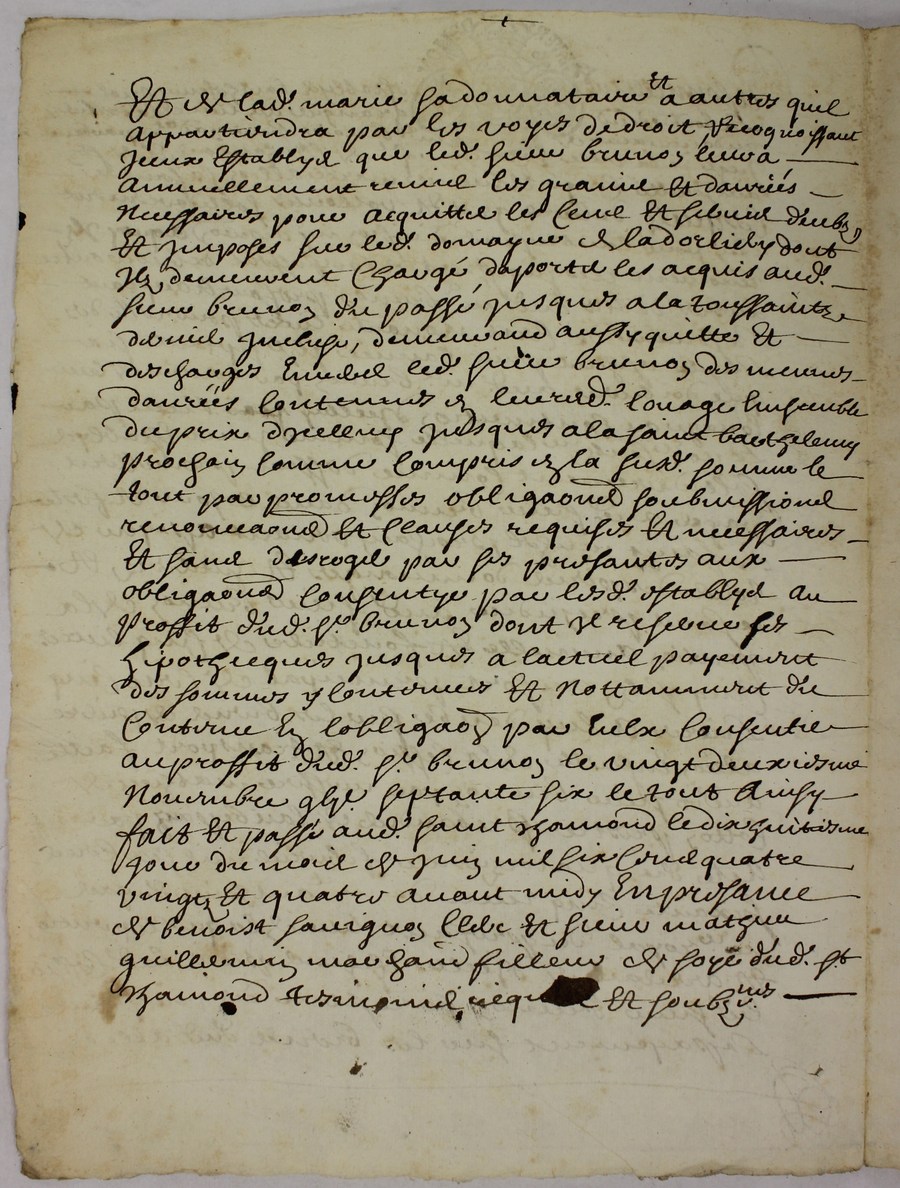 Et de lad. marie sa donnataire et a autres quil
appartiendra par les voyes de droit, Recognoissant
jceux Establys que led. sieur brunon leur a
annuellement remis les grains Et danrées
necessaires pour acquitter les Cens Et servis deubz,
Et jmposés sur led. domayne de dont
Ilz demeurent Chargé daporter les acquis aud.
sieur brunon du passé, jusques a la toussaintz
dernier jncluse, demeurand aussy quitte Et
deschargés Envers led. sieur brunon des mesmes
danrées Contenues en leurd. louage Ensemble
du prix dycelluy jusques a la saint barthelemy
prochain comme Compris en la susd. somme le
tout par promesses obligaons soubmissions
renonciaons Et Clauses requises Et necessaires
Et sans desroger par ses presantes aux
obligaons Consenties par lesd. establys au
proffit dud. sr. brunon dont Il reserve ses
hipothecques jusques a lactuel payement
des sommes y Contenues Et nottamment du
Contenu En lobligaon par Eulx Consentie
au proffit dud. sr. brunon le vingt deuxiesme
Novembre septante six le tout Ainsy
fait Et passé aud. saint chamond le dix huitiesme
jour du mois de juin mil six Cens quatre
vingtz Et quatre avant midy En presance
de benoist savignon Clerc Et sieur mathieu
guillermin marchand filleur de soye dud. st
chamond tesmoins Et soubznés